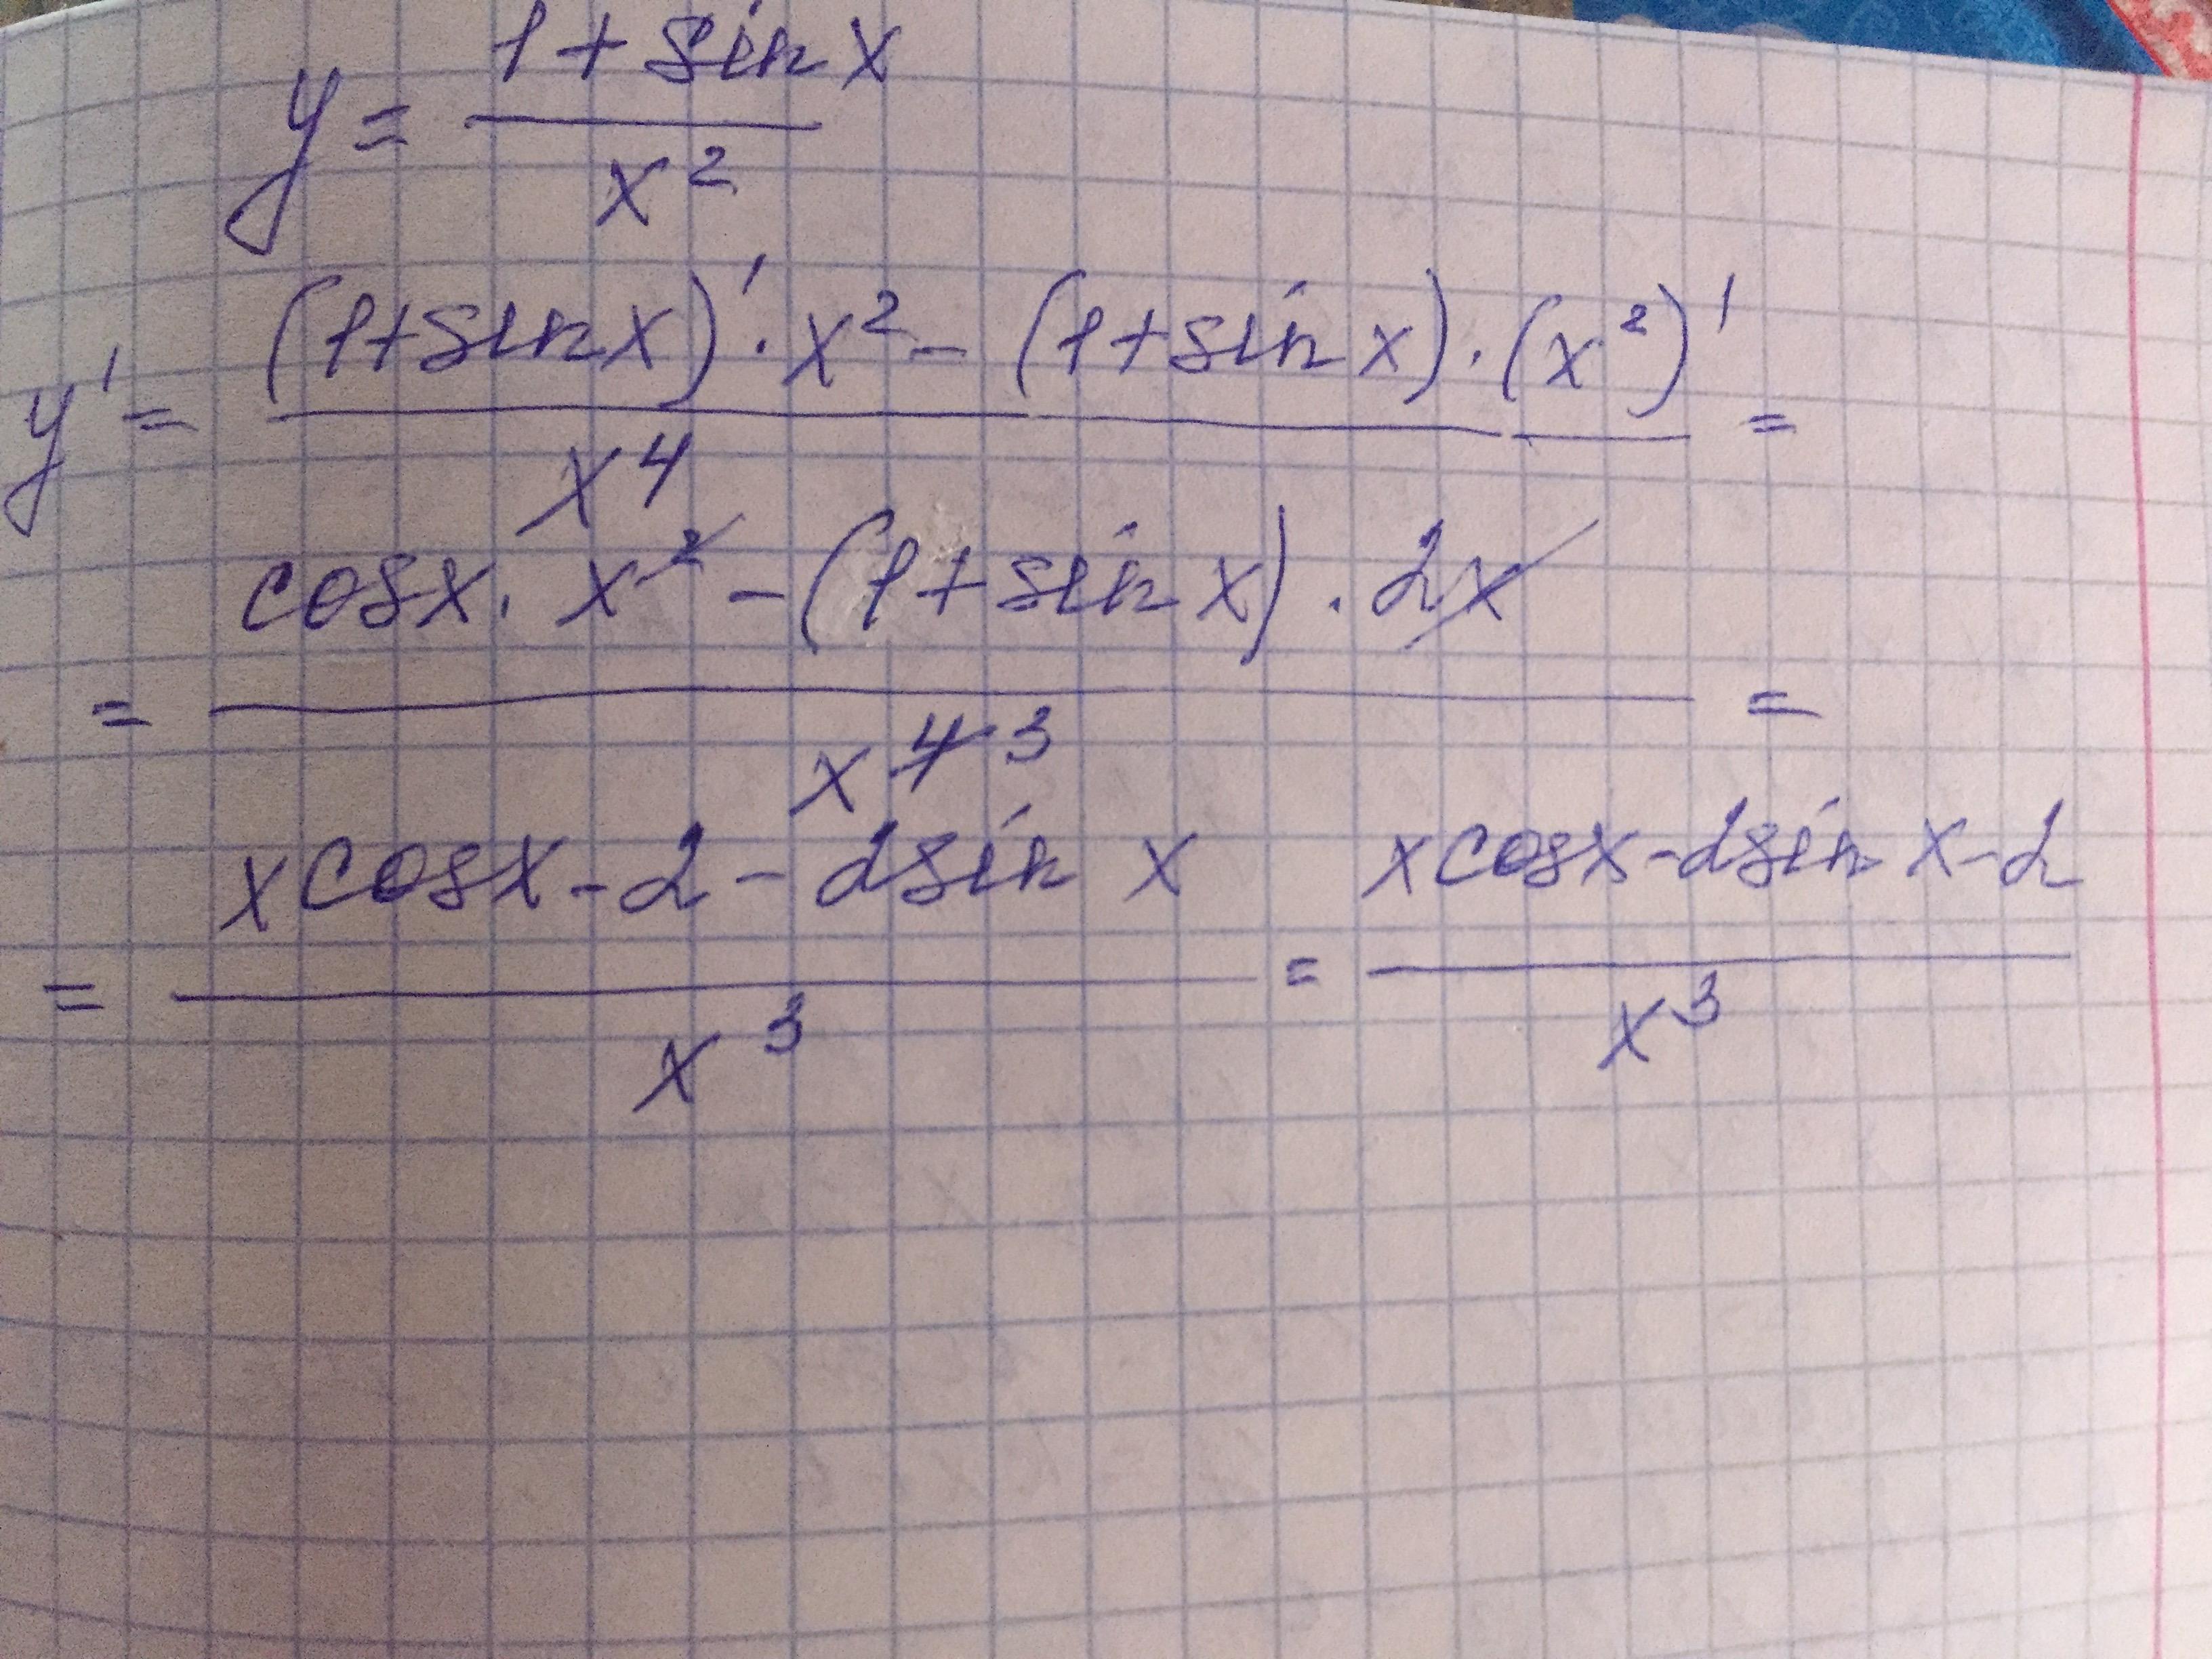 y = (1 + sin x) / x²
y' = ((1+sin x)' · x² - (1+sin x) · (x²)') / x⁴ =
= (cos x · x² - (1+sin x) · 2x) / x⁴ ³ =
= (x cos x - 2 - 2 sin x) / x³ = (x cos x - 2 sin x - 2) / x³